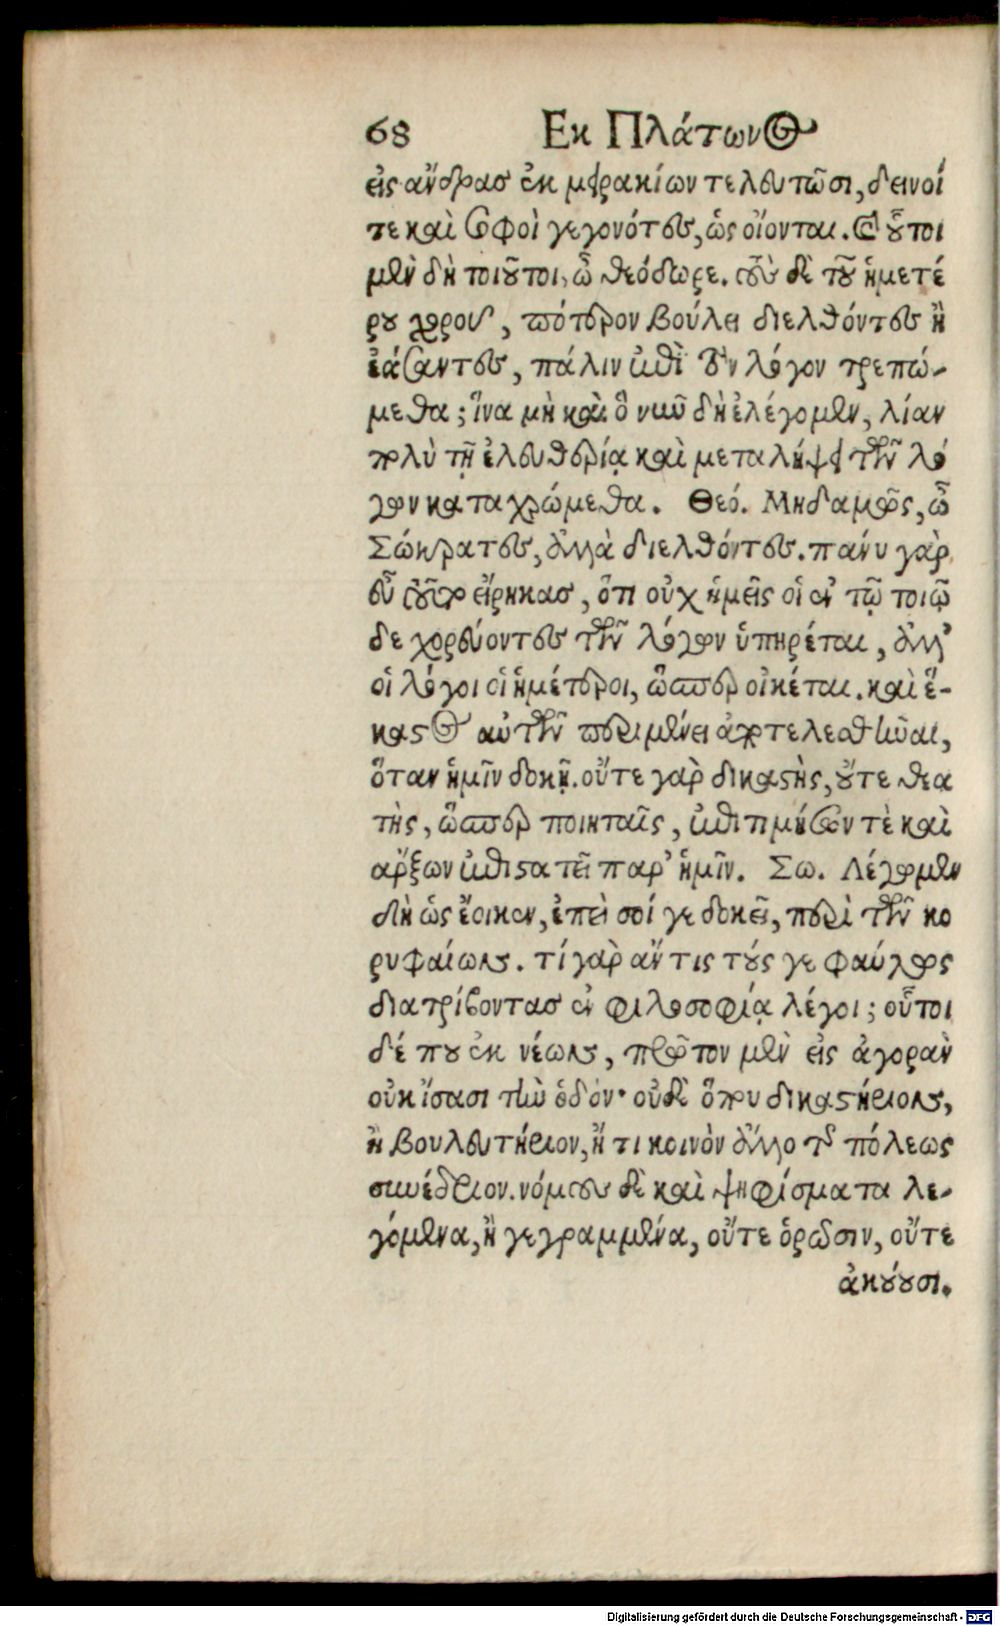 68 Εκ Πλάτωνος
εἰς ἄνδρας ἐκ μειρακίων τελευτῶσι, δεινοί
τε καὶ σοφοὶ γεγονότες, ὡς οἴονται. Οὗτοι
μὲν δὴ τοιοῦτοι, ὦ θεόδωρε. τοὺς δὲ τοῦ ἡμετέ
ρου χοροῦ, πότερον βούλει διελθόντες ἢ
ἐάσαντες, πάλιν ἐπὶ τὸν λόγον τρεπώ-
μεθα; ἵνα μὴ καὶ ὃ νιῦ δὴ ἐλέγομεν, λίαν
πολὺ τῇ ἐλευθερίᾳ καὶ μεταλήψει τῶν λό
γων καταχρώμεθα. Θεό. Μηδαμῶς, ὦ
Σώκρατες, ἀλλὰ διελθόντες. πάνυ γὰρ
εὖ τοῦτο εἴρηκας, ὅτι οὐχ ἡμεῖς οἱ ἐν τῷ τοιῷ
δε χορεύοντες τῶν λόγων ὑπηρέται, ἀλλ’
οἱ λόγοι οἱ ἡμέτεροι, ὥσπερ οἰκέται. καὶ ἕ-
καστος αὐτῶν περιμένει ἀποτελεσθῆναι,
ὅταν ἡμῖν δοκῇ. οὔτε γὰρ δικαστὴς, οὔτε θεα
τὴς, ὥσπερ ποιηταῖς, ἐπιτιμήσων τὲ καὶ
ἄρξων ἐπιστατεῖ παρ’ ἡμῖν. Σω. Λέγωμεν
δὴ ὡς ἔοικεν, ἐπεὶ σοί γε δοκεῖ, περὶ τῶν κο
ρυφαίων. τί γὰρ ἄν τις τούς γε φαύλως
διατρίβοντας ἐν φιλοσοφίᾳ λέγοι; οὗτοι
δέ που ἐκ νέων, πρῶτον μὲν εἰς ἀγορὰν
οὐκ ἴσασι τὴν ὁδόν· οὐδὲ ὅπου δικαστήριον,
ἢ βουλευτήριον, ἤ τι κοινὸν ἄλλο τῆς πόλεως
συνέδριον. νόμους δὲ καὶ ψηφίσματα λε-
γόμενα, ἢ γεγραμμένα, οὔτε ὁρῶσιν, οὔτε
ἀκούουσι.
Digitalisierung gefördert durch die Deutsche Forschungsgemeinschaft - DFG